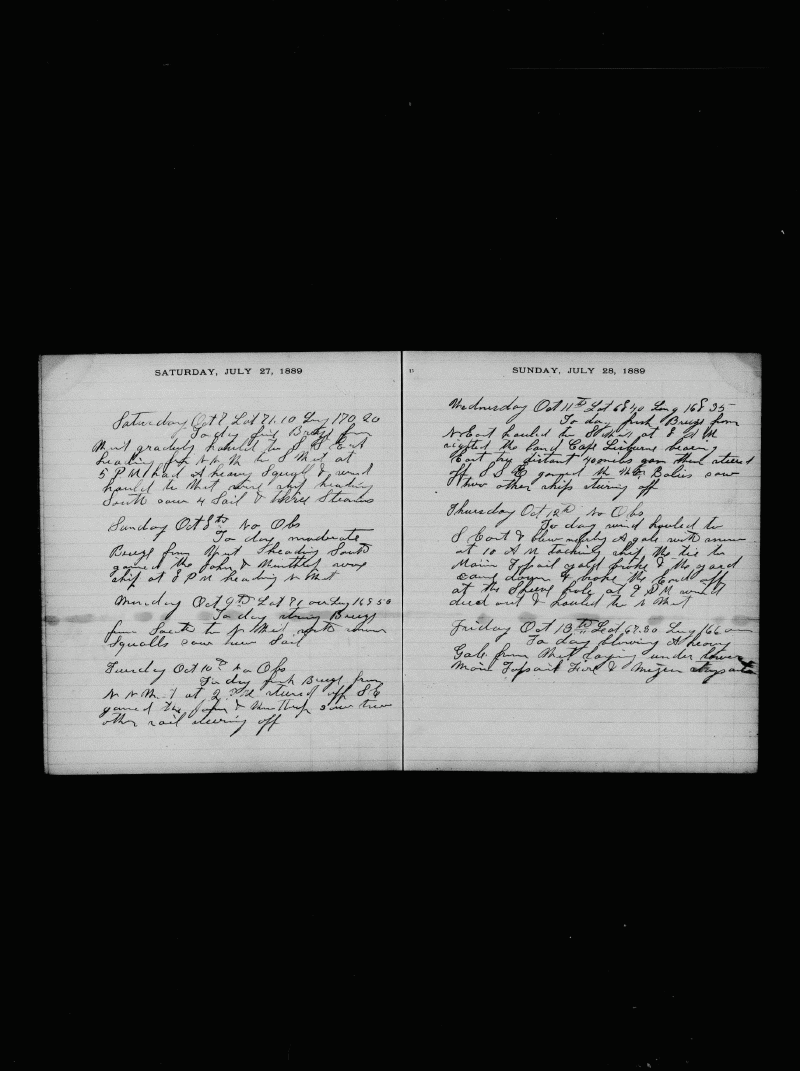 SATURDAY, JULY 27, 1889
Saturday Oct 7 Lat 71.10 Lng 170 20
To day fine Breeze from
West gradely hauled to S S East
heading to the S West at
5 P M had A heavy Squall & wind
hauled to West wore ship heading
South saw 4 Sail & three Steamers
Sunday Oct 8th No Obs
To day moderate
Breeze from West heading South
gamed the John & Winthrop wore
ship at 8 P M heading N West
Monday Oct 9th Lat 71 Lng 168 50
To day strong Breeze
from South to N West with snow
Squalls saw Sail
Tuesday Oct 10th No Obs
To day fresh Breeze from
N N W at 2 P M steered off S E
gamed the John & Winthrop saw two
other sail steering off
SUNDAY, JULY 28, 1889
Wednesday Oct 11th Lat 68 40 Long 168 35
To day fresh Breeze from
N East hauled to at 8 A M
sighted the land Cape Lisburne bearing
East by distant 40 miles then steered
off S S E gamed the Hel. Balies saw
two other ships steering off
Thursday Oct 12th No Obs
To day wind hauled to
S East & blew nearly A gale with snow
at 10 A M tacking ship the tie to
Main Topsail yard broke & the yard
came down & broke the End off
at the Sheave hole at 8 P M wind
died out & hauled to N West
Friday Oct 13th Lat 67.30 Lng 166
To day blowing A heavy
Gale from West laying under lower
Main Topsail Fore & Mizen staysails